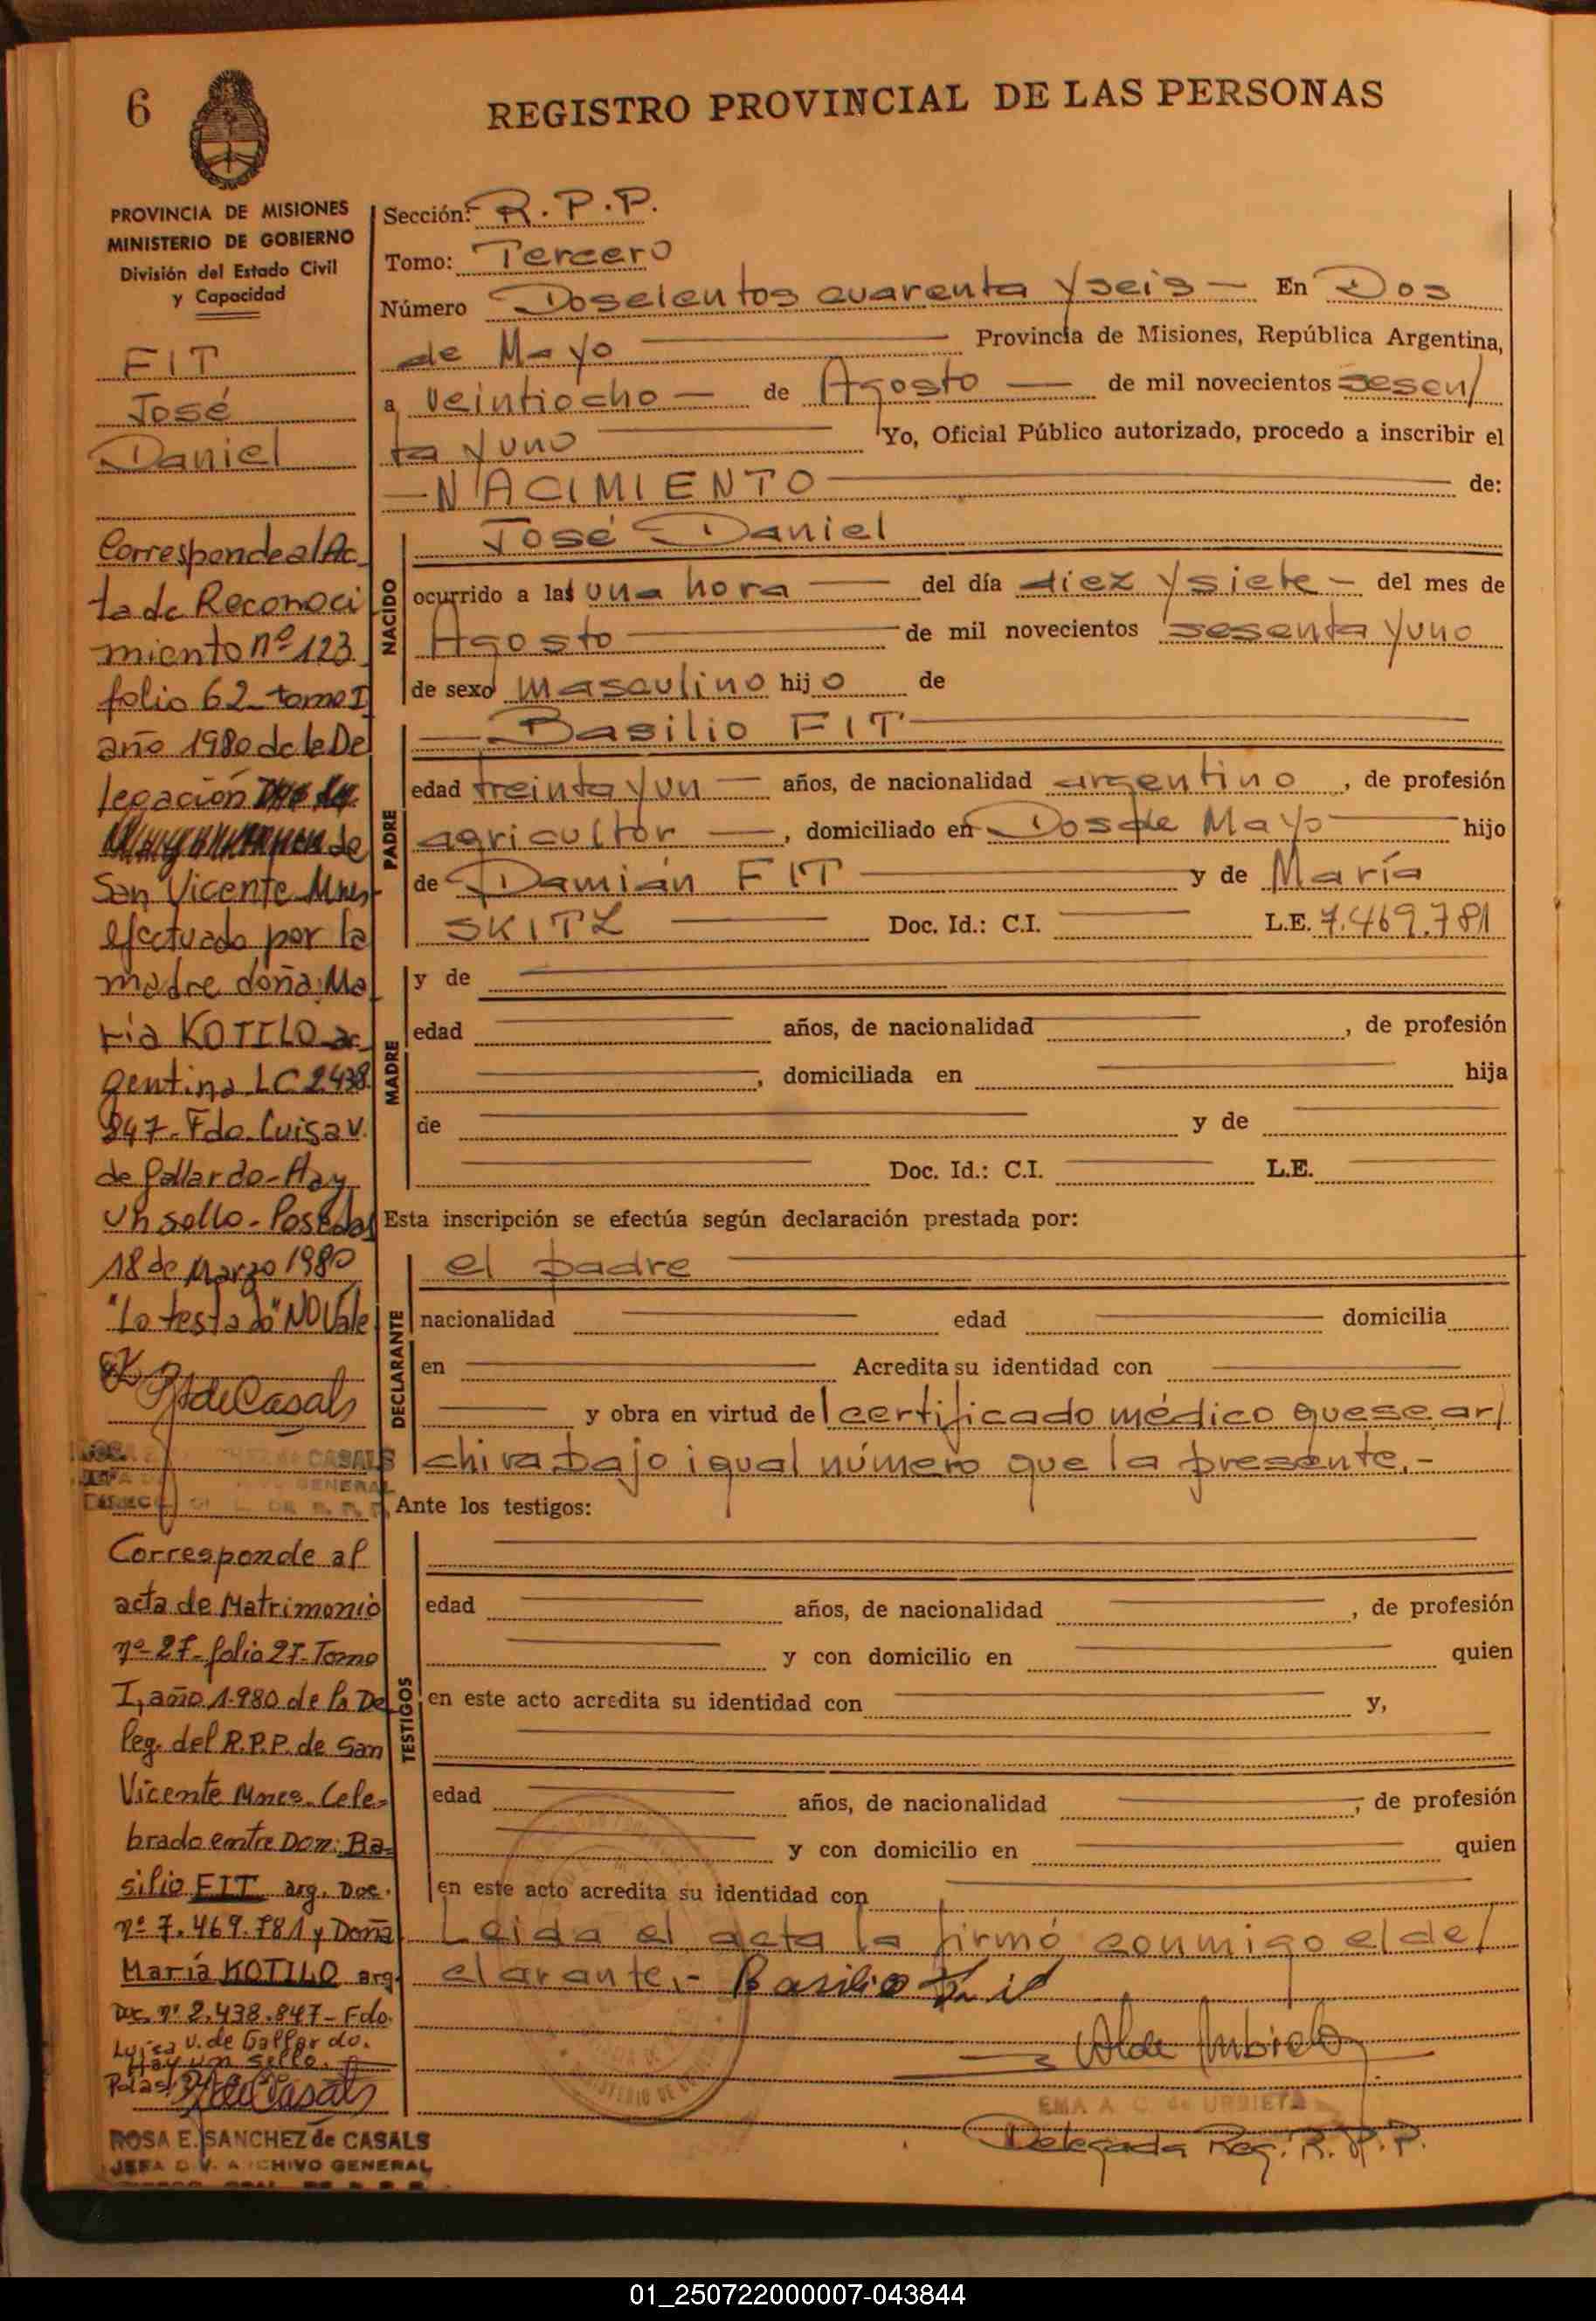 6
REGISTRO PROVINCIAL DE LAS PERSONAS
PROVINCIA DE MISIONES
MINISTERIO DE GOBIERNO
División del Estado Civil
y Capacidad
FIT
José
Daniel
Corresponde al Ac
ta de Reconoci
miento nº 123
folio 62 tomo I
año 1980 de la De
legación
de
San Vicente Mnes
efectuado por la
madre doña: Ma
ría KOTILO ar
gentina LC 2438
847-Fdo. Luisa V.
de Gallardo-Hay
un sello-Posadas
18 de Marzo 1980
"Lo testado" NO Vale
R S de Casals
CASALS
GENERAL
Corresponde al
acta de Matrimonio
nº 27-folio 27-Tomo
I, año 1.980 de la De
leg. del R.P.P. de San
Vicente Mnes. Cele-
brado entre Don: Ba-
silio FIT arg. Doc.
nº 7.469.781 y Doña
María KOTILO arg.
Doc. nº 2.438.847-Fdo.
Luisa V. de Gallardo.
Hay un sello.
de Casals
ROSA E. SANCHEZ de CASALS
JEFA DIV. ARCHIVO GENERAL
Sección: R.P.P.
Tomo: Tercero
Número Doscientos cuarenta y seis En Dos
de Mayo Provincia de Misiones, República Argentina,
a veintiocho de Agosto de mil novecientos sesen/
ta y uno Yo, Oficial Público autorizado, procedo a inscribir el
NACIMIENTO de:
NACIDO
José Daniel
ocurrido a las una hora del día diez y siete del mes de
Agosto de mil novecientos sesenta y uno
de sexo masculino hijo de
PADRE
Basilio FIT
edad treinta y un años, de nacionalidad argentino, de profesión
agricultor, domiciliado en Dos de Mayo hijo
de Damián FIT y de María
SKITZ Doc. Id.: C.I. L.E. 7.469.781
MADRE
y de
edad años, de nacionalidad , de profesión
, domiciliada en hija
de y de
Doc. Id.: C.I. L.E.
Esta inscripción se efectúa según declaración prestada por:
DECLARANTE
el padre
nacionalidad edad domicilia
en Acredita su identidad con
y obra en virtud del certificado médico que se ar/
chiva bajo igual número que la presente.-
Ante los testigos:
TESTIGOS
edad años, de nacionalidad , de profesión
y con domicilio en quien
en este acto acredita su identidad con y,
edad años, de nacionalidad , de profesión
y con domicilio en quien
en este acto acredita su identidad con
Leida el acta la firmó conmigo el de/
clarante.- Basilio Fit
EMA A. C. de URBIETA
Delegada Reg. R.P.P.
01_250722000007-043844